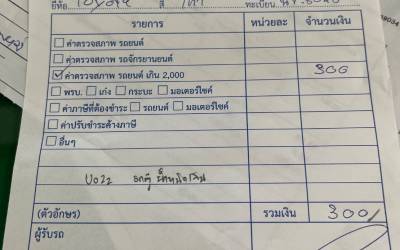 ยี่ห้อ Toyota สี เทา ทะเบียน
รายการ หน่วยละ จำนวนเงิน
ค่าตรวจสภาพ รถยนต์
ค่าตรวจสภาพ รถจักรยานยนต์
ค่าตรวจสภาพ รถยนต์ เกิน 2,000 300
พรบ. เก๋ง กระบะ มอเตอร์ไซค์
ค่าภาษีที่ต้องชำระ รถยนต์ มอเตอร์ไซค์
ค่าปรับชำระล่าช้าภาษี
อื่นๆ
(ตัวอักษร) รวมเงิน 300
ผู้รับรถ